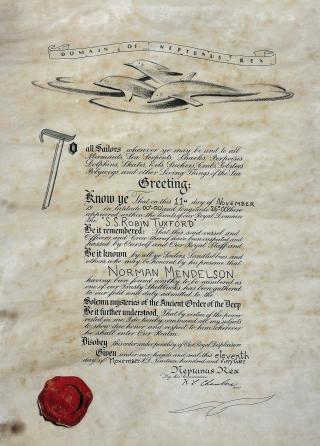 DOMAIN OF NEPTUNUS REX
To all Sailors wherever ye may be and to all
Mermaids, Sea Serpents, Sharks, Porpoises
Dolphins, Skates, Eels, Suckers, Crabs, Lobsters
Polywogs and other Living Things of the Sea
Greeting:
Know ye That on this 11th day of NOVEMBER
19 in latitude 00°-00 and longitude 26°00
appeared within the limits of our Royal Domain
the "S.S. ROBIN TUXFORD"
Be it remembered: That this said vessel and
Officers and Crew thereof have been inspected and
passed by Ourself and Our Royal Staff and
Be it known by all ye Sailors, Landlubbers and
others who may be honored by his presence that
NORMAN MENDELSON
having been found worthy to be numbered as
one of our Trusty Shellbacks has been gathered
to our fold and duly initiated to the
Solemn mysteries of the Ancient Order of the Deep
Be it further understood: That by virtue of the power
vested in me I do hereby command all my subjects
to show due honor and respect to him wherever
he shall enter Our Realm.
Disobey this order under penalty of Our Royal Displeasure
Given under our hands and seal this eleventh
day of November A.D. Nineteen hundred and
Neptunus Rex